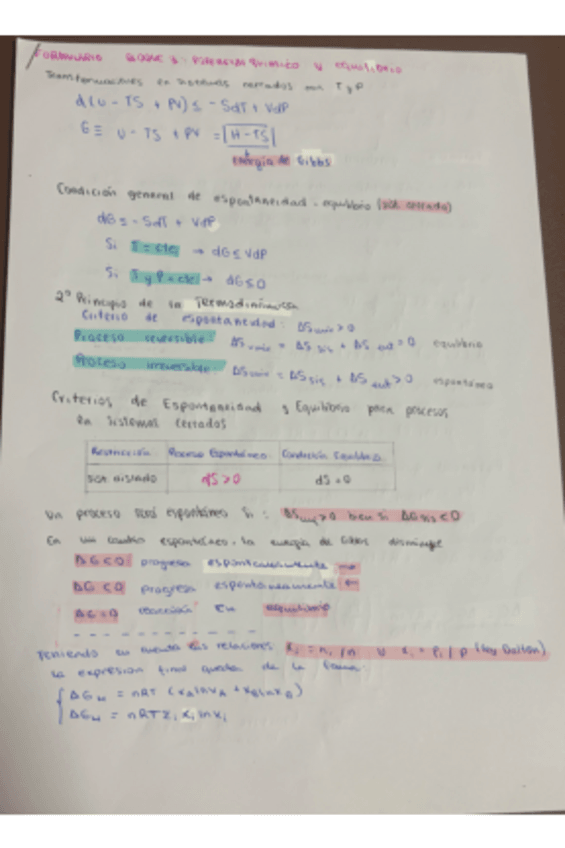 FORMULARIO BLOQUE 3: POTENCIAL QUIMICO Y EQUILIBRIO
Transformaciones en sistemas cerrados con T y P
d(U - TS + PV) ≤ - SdT + VdP
G ≡ U - TS + PV = H - TS
Energía de Gibbs
Condición general de espontaneidad - equilibrio (sist. cerrado)
dG ≤ - SdT + VdP
Si T = cte → dG ≤ VdP
Si T y P = cte → ΔG ≤ 0
2º Principio de la Termodinámica
Criterio de espontaneidad: ΔS univ > 0
Proceso reversible: ΔS univ = ΔS sis + ΔS = 0 equilibrio
Proceso irreversible: ΔS univ = ΔS sis + ΔS > 0 espontáneo
Criterios de Espontaneidad y Equilibrio para procesos
en sistemas cerrados
Restricción Proceso Espontáneo Condición Equilibrio
Sist. aislado dS > 0 dS = 0
Un proceso será espontáneo si: ΔS univ > 0 bien si ΔG sis < 0
En un cambio espontáneo, la energía de Gibbs disminuye
ΔG < 0 progresa espontáneamente
ΔG < 0 progresa espontáneamente
ΔG = 0 reacción en equilibrio
Teniendo en cuenta las relaciones xi = ni / n y xi = Pi / P (ley Dalton)
la expresión final queda de la forma:
ΔG M = nRT (xA ln xA + xB ln xB)
ΔG M = nRT Σi xi ln xi